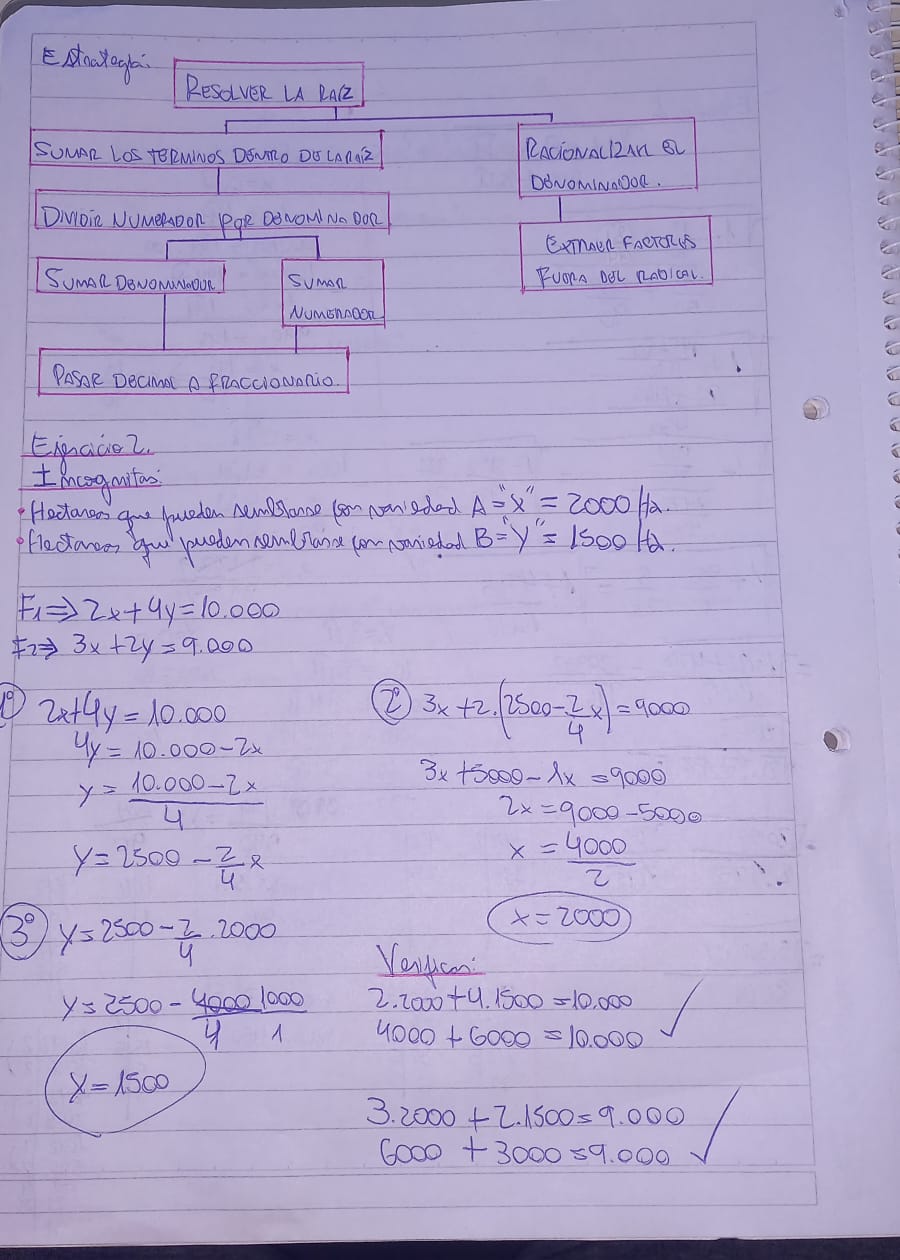 Estrategia:
RESOLVER LA RAÍZ
SUMAR LOS TERMINOS DENTRO DE LA RAÍZ
RACIONALIZAR EL
DENOMINADOR.
DIVIDIR NUMERADOR POR DENOMINADOR
EXTRAER FACTORES
FUERA DEL RADICAL.
SUMAR DENOMINADOR
SUMAR
NUMERADOR
PASAR DECIMAL A FRACCIONARIO.
Ejercicio 2.
Incognitas:
• Hectareas que pueden sembrarse con variedad A = "X" = 2000 Ha.
• Hectareas que pueden sembrarse con variedad B = "Y" = 1500 Ha.
F1 => 2x + 4y = 10.000
F2 => 3x + 2y = 9.000
1º 2x + 4y = 10.000
4y = 10.000 - 2x
y = 10.000 - 2x / 4
y = 2500 - 2/4 x
2º 3x + 2.(2500 - 2/4 x) = 9000
3x + 5000 - 1x = 9000
2x = 9000 - 5000
x = 4000 / 2
x = 2000
3º y = 2500 - 2/4 . 2000
y = 2500 - 4000 1000 / 4 1
y = 1500
Verificar:
2.2000 + 4.1500 = 10.000
4000 + 6000 = 10.000 ✓
3.2000 + 2.1500 = 9.000
6000 + 3000 = 9.000 ✓